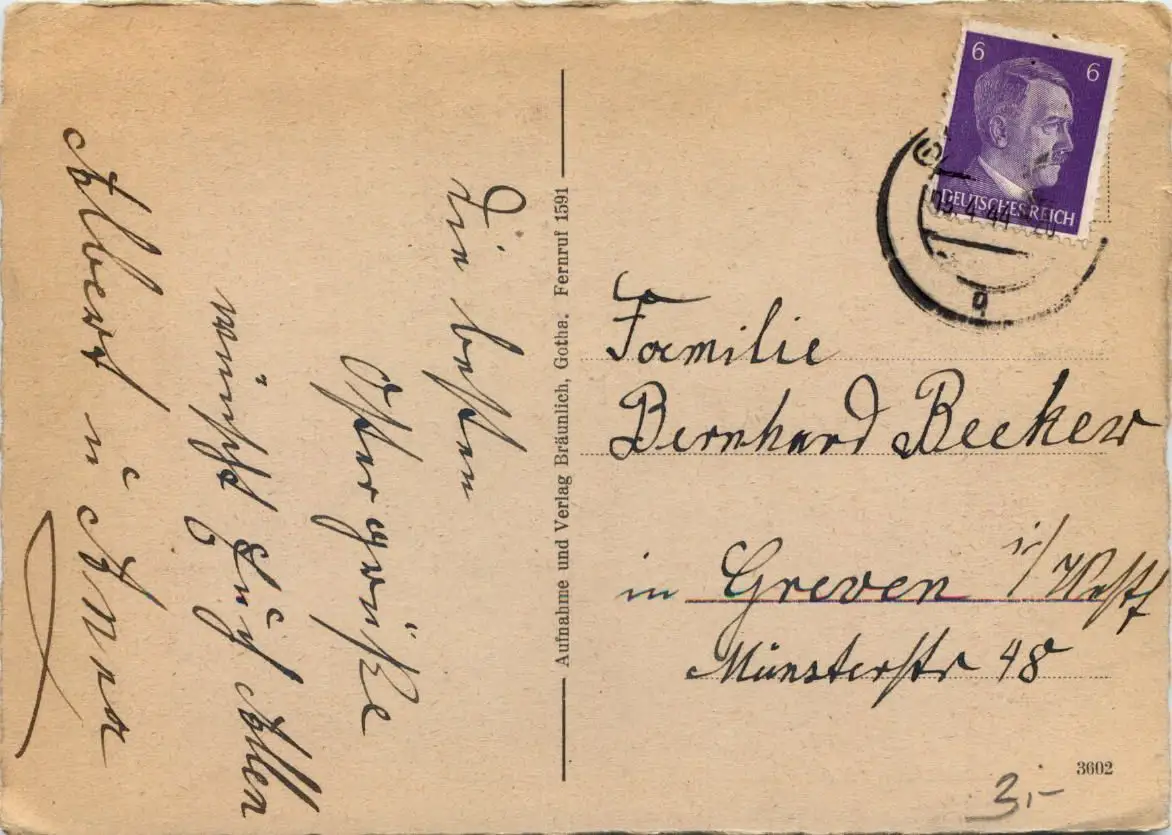 Die besten
Ostergrüße
wünscht Euch Allen
Albert u Anna
Aufnahme und Verlag Bräunlich, Gotha. Fernruf 1591
6 6
DEUTSCHES REICH
4.44
g
Familie
Bernhard Becker
in Greven i/Westf
Münsterstr 48
3602
3,-